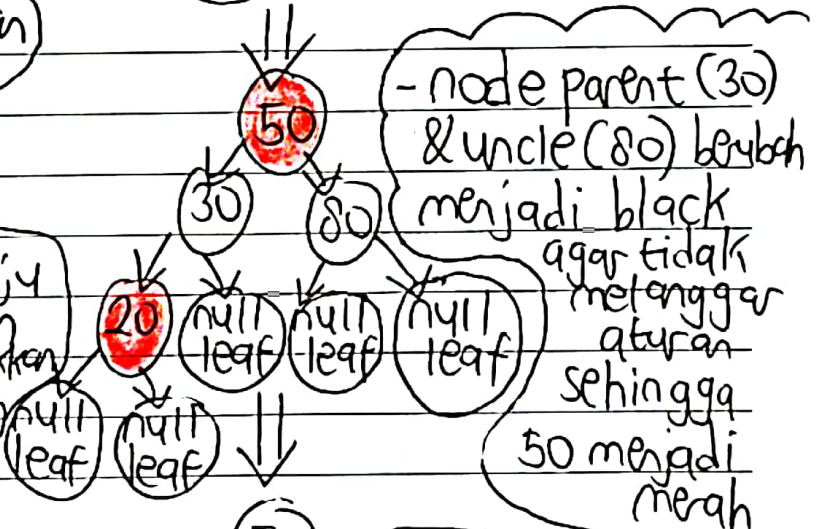 50
30
80
20
null
leaf
null
leaf
null
leaf
null
leaf
null
leaf
- node parent (30)
& uncle (80) berubah
menjadi black
agar tidak
melanggar
aturan
sehingga
50 menjadi
merah